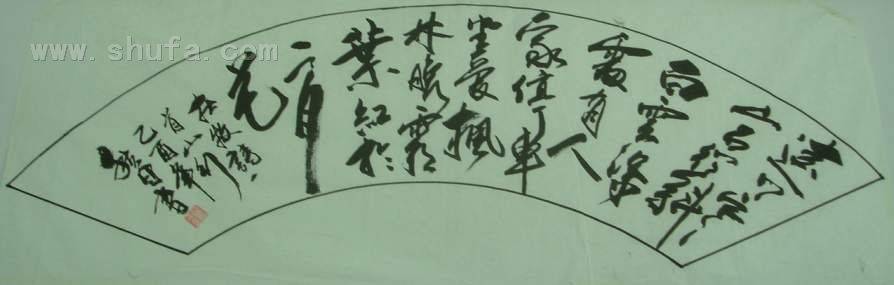 www.shufa.com
遠上寒
山石徑斜
白雲深
處有人
家停車
坐愛楓
林晚霜
葉紅於
二月
花
杜牧詩一
首山行
乙酉
書